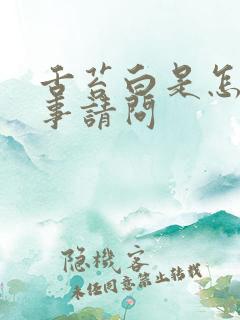 舌苔白是怎
事請問
隐機客
未经同意禁止转载